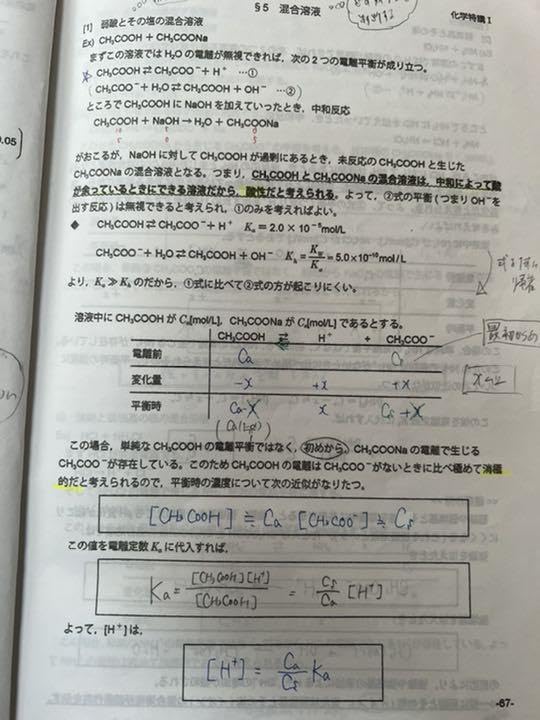 §5 混合溶液
化学特講Ⅰ
[1] 弱酸とその塩の混合溶液
Ex) CH₃COOH + CH₃COONa
まずこの溶液では H₂O の電離が無視できれば，次の２つの電離平衡が成り立つ。
CH₃COOH ⇄ CH₃COO⁻ + H⁺ …①
( CH₃COO⁻ + H₂O ⇄ CH₃COOH + OH⁻ …② )
ところで CH₃COOH に NaOH を加えていったとき，中和反応
CH₃COOH + NaOH → H₂O + CH₃COONa
10 5 0
5 0 5
がおこるが，NaOH に対して CH₃COOH が過剰にあるとき，未反応の CH₃COOH と生じた
CH₃COONa の混合溶液となる。つまり，CH₃COOH と CH₃COONa の混合溶液は，中和によって酸
が余っているときにできる溶液だから，酸性だと考えられる。よって，②式の平衡(つまり OH⁻ を
出す反応)は無視できると考えられ，①のみを考えればよい。
◆ CH₃COOH ⇄ CH₃COO⁻ + H⁺ Kₐ = 2.0 × 10⁻⁵ mol/L
CH₃COO⁻ + H₂O ⇄ CH₃COOH + OH⁻ Kₕ = Kw/Kₐ = 5.0×10⁻¹⁰ mol/L
より，Kₐ ≫ Kₕ のだから，①式に比べて②式の方が起こりにくい。
溶液中に CH₃COOH が Cₐ[mol/L]，CH₃COONa が Cₛ[mol/L] であるとする。
CH₃COOH ⇄ H⁺ + CH₃COO⁻
最初から
電離前 Ca Cs
変化量 -x +x +x
平衡時 Ca-x x Cs+x
この場合，単純な CH₃COOH の電離平衡ではなく，初めから，CH₃COONa の電離で生じる
CH₃COO⁻ が存在している。このため CH₃COOH の電離は CH₃COO⁻ がないときに比べ極めて消極
的だと考えられるので，平衡時の濃度について次の近似がなりたつ。
[CH₃COOH] ≒ Ca [CH₃COO⁻] ≒ Cs
この値を電離定数 Kₐ に代入すれば，
Ka = [CH₃COO][H⁺]/[CH₃COOH] = Cs/Ca [H⁺]
よって，[H⁺] は，
[H⁺] = Ca/Cs Ka
-67-